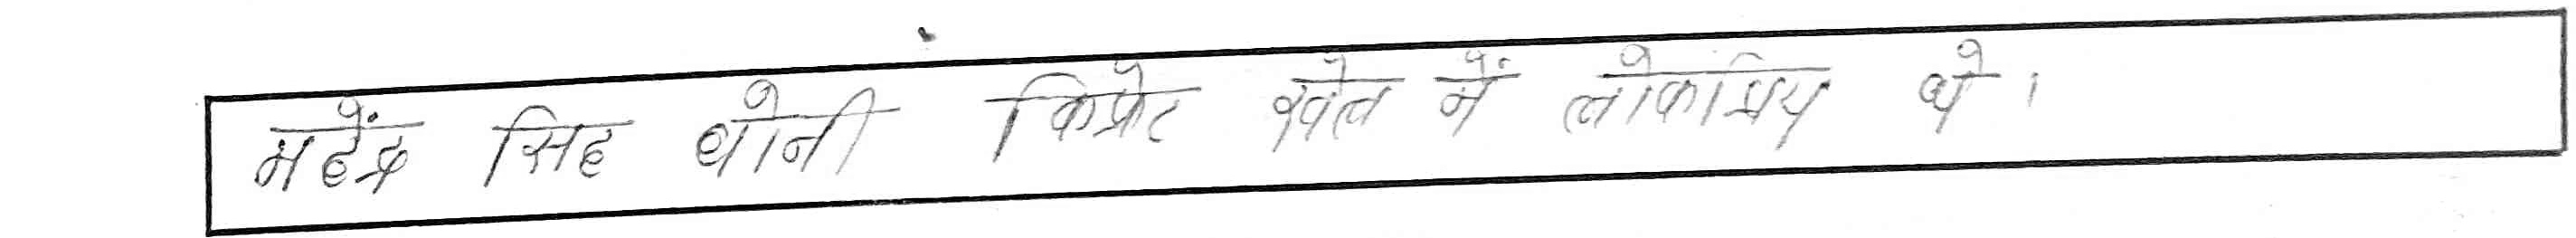 महेंद्र सिह धोनी क्रिकेट खेल में लोकप्रिय थे।